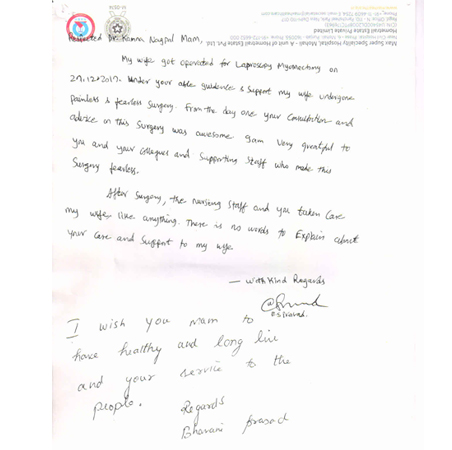 Respected Dr. Kanna Nagpal Mam,
My wife got operated for Laproscopy Myomectomy on
27.12.2017. Under your able guidence & Support my wife undergone
painless & fearless Surgery. From the day one your Consultation and
advice on this Surgery was awesome gam very grateful to
you and your Collegues and Supporting Staff who make this
Surgery fearless.
After Surgery, the nursing Staff and you taken Care
my wife like anything. There is no words to Explain about
your Care and Support to my wife
— With Kind Regards
I wish you Mam to
have healthy and long live
and your service to the
people.
Regards
Bhavani prasad